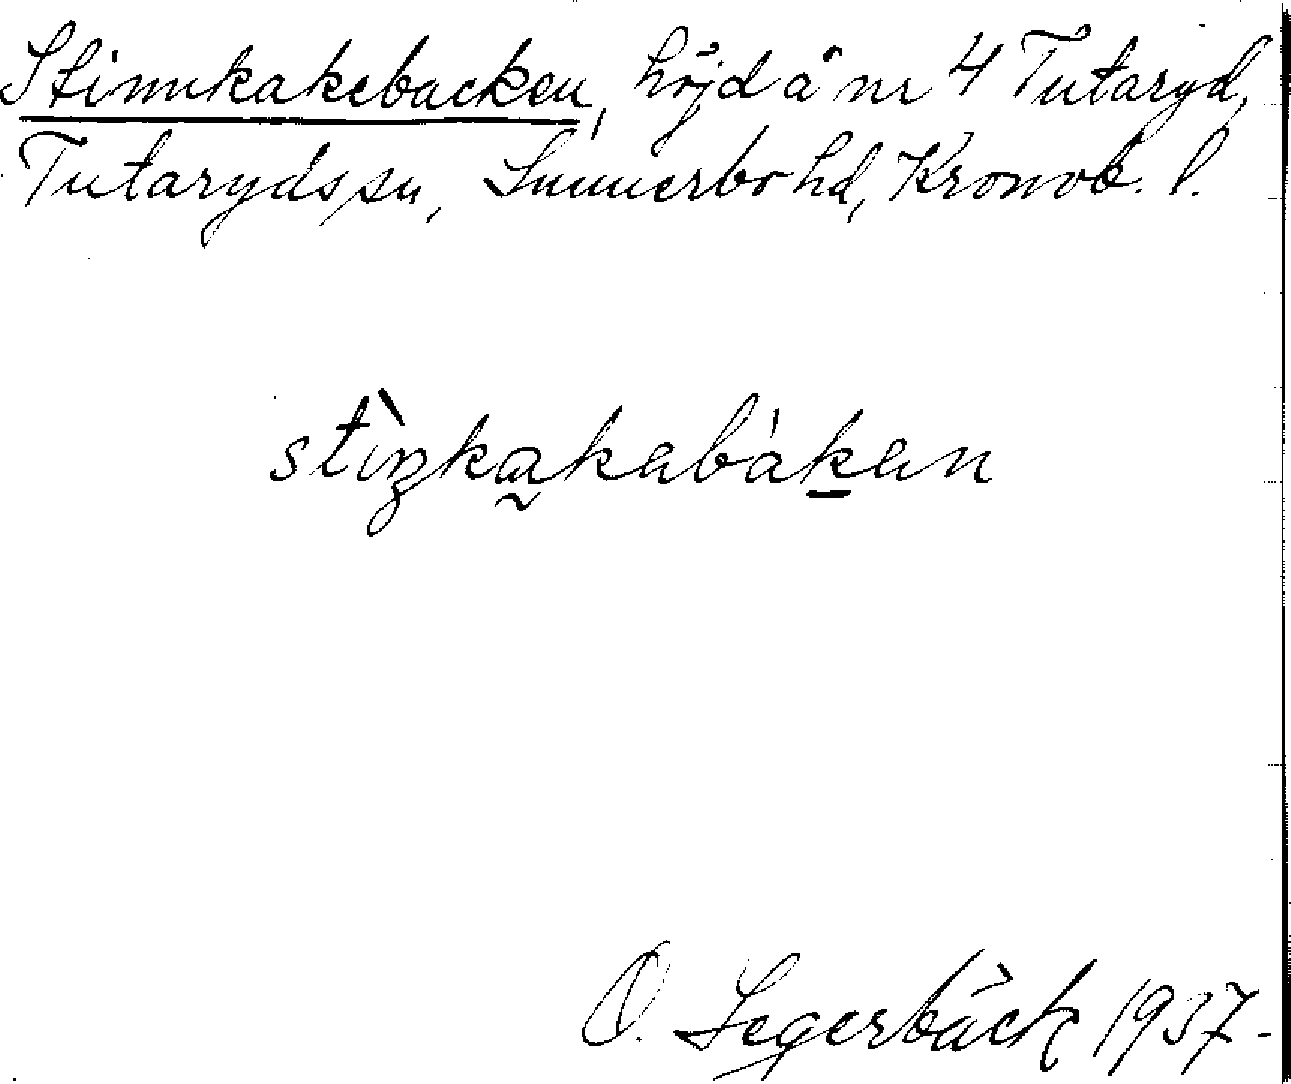 Stinnkakebacken, höjd å nr 4 Tutaryd,
Tutaryds sn, Sunnerbo hd, Kronob. l.
O. Segerbäck 1937.